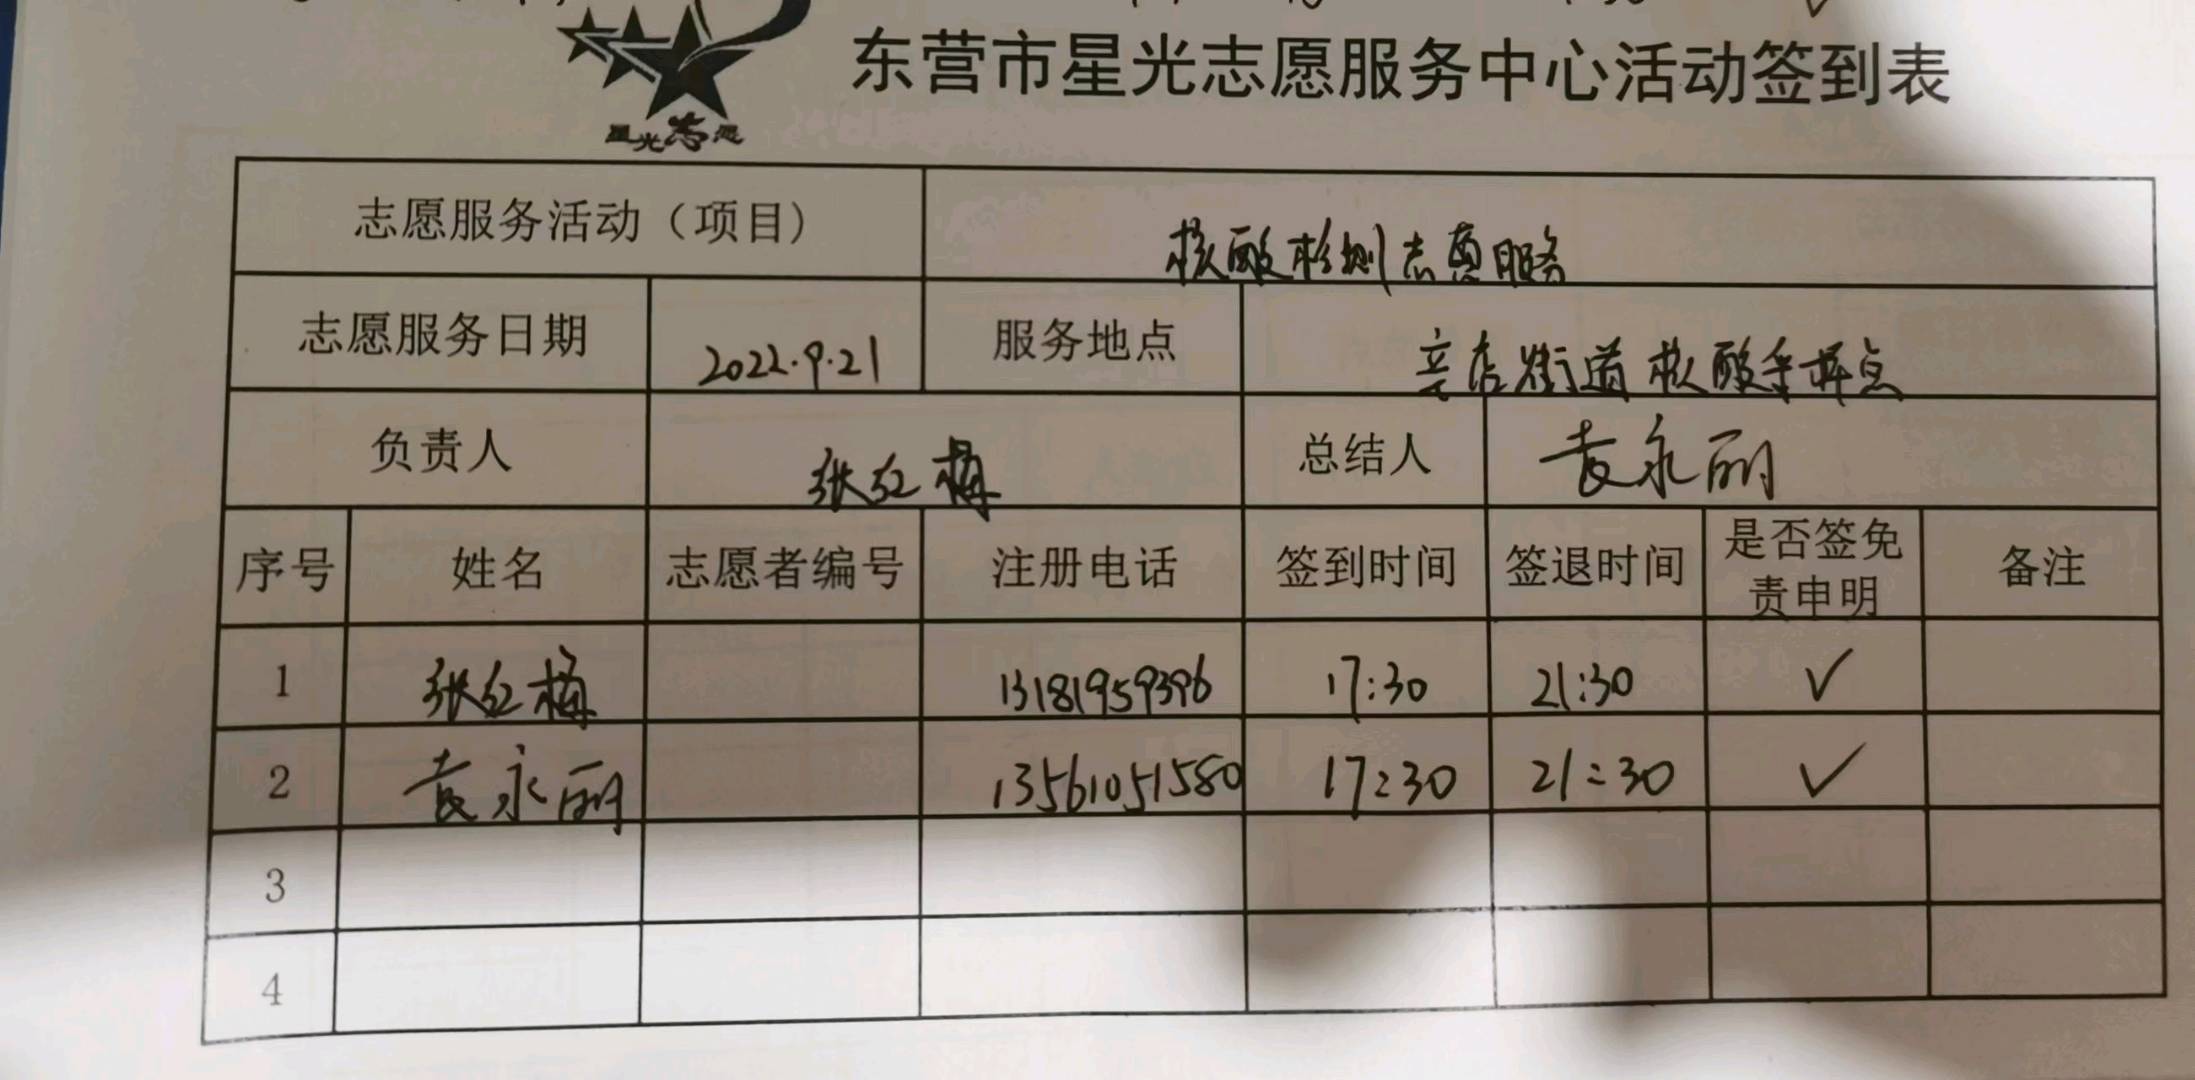 东营市星光志愿服务中心活动签到表
星光志愿
志愿服务活动（项目） 核酸检测志愿服务
志愿服务日期 2022.9.21 服务地点 辛店街道核酸采样点
负责人 张红梅 总结人 袁永丽
序号 姓名 志愿者编号 注册电话 签到时间 签退时间 是否签免责申明 备注
1 张红梅 13181959396 17:30 21:30 ✓
2 袁永丽 13561051580 17:30 21:30 ✓
3
4